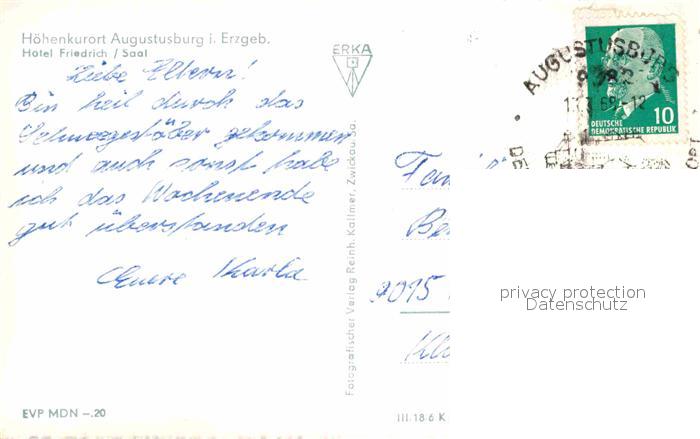 Höhenkurort Augustusburg i. Erzgeb.
Hotel Friedrich / Saal
Liebe Eltern!
Bin heil durch das
Schneegestöber gekommen
und auch sonst habe
ich das Wochenende
gut überstanden
Euere Karla
EVP MDN –.20
ERKA
Fotografischer Verlag Reinh. Kallmer, Zwickau Sa.
III.18.6 K
AUGUSTUSBURG
9382
10
DEUTSCHE
DEMOKRATISCHE REPUBLIK
Fam
Be
9015
Kl
privacy protection
Datenschutz